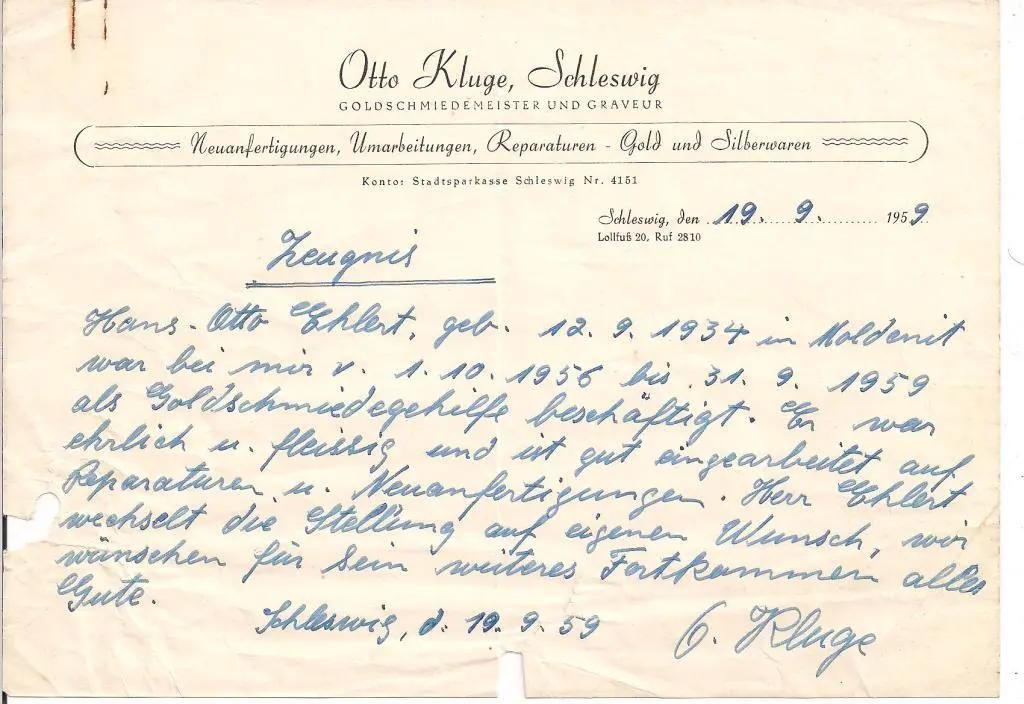 Otto Kluge, Schleswig
GOLDSCHMIEDEMEISTER UND GRAVEUR
Neuanfertigungen, Umarbeitungen, Reparaturen - Gold und Silberwaren
Konto: Stadtsparkasse Schleswig Nr. 4151
Schleswig, den 19. 9. 1959
Lollfuß 20, Ruf 2810
Zeugnis
Hans-Otto Ehlert, geb. 12. 9. 1934 in Moldenit
war bei mir v. 1. 10. 1956 bis 31. 9. 1959
als Goldschmiedegehilfe beschäftigt. Er war
ehrlich u. fleissig und ist gut eingearbeitet auf
Reparaturen u. Neuanfertigungen. Herr Ehlert
wechselt die Stellung auf eigenen Wunsch, wir
wünschen für sein weiteres Fortkommen alles
Gute.
Schleswig, d. 19. 9. 59
O. Kluge